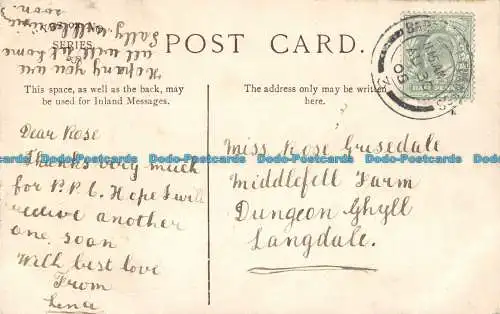 SERIES.
POST CARD.
This space, as well as the back, may
be used for Inland Messages.
The address only may be written
here.
Dear Rose
Thanks very much
for P. P. C. Hope I will
receive another
one soon
With best love
From
Lena
Hoping you are
all well at home
Sally will write
soon.
Miss Rose Grisedale
Middlefell Farm
Dungeon Ghyll
Langdale.
Postcards-Info.com